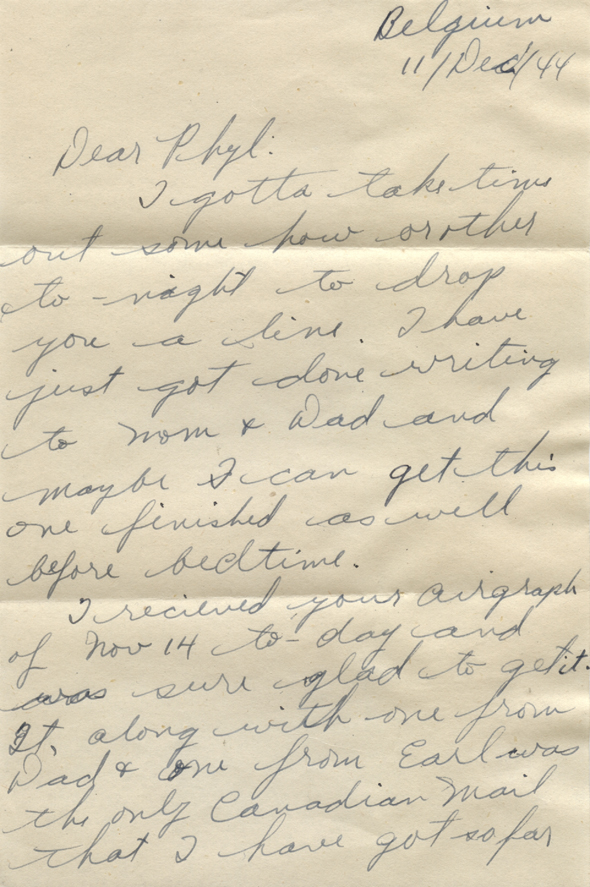 Belgium
11/Dec/44
Dear Phyl:
I gotta take time
out some how or other
to-night to drop
you a line. I have
just got done writing
to Mom & Dad and
maybe I can get this
one finished as well
before bedtime.
I recieved your airgraph
of Nov 14 to-day and
was sure glad to get it.
It, along with one from
Dad & one from Earl was
the only Canadian Mail
that I have got so far